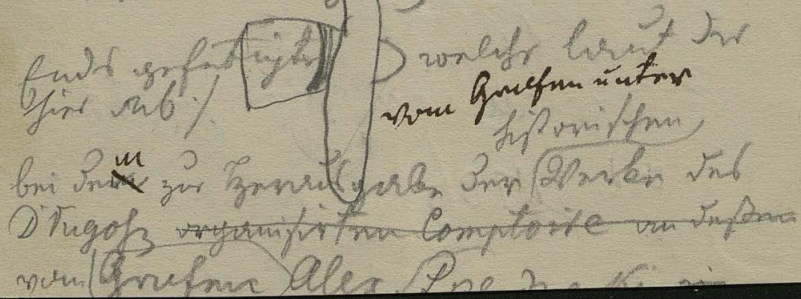 Ends gefertigte welche laut der
hier Rub /.
vom Grafen unter
historischen
bei dem zur Herausgabe der Werke des
Długosz organisirten Comptoire an deßen
vom Grafen Alex